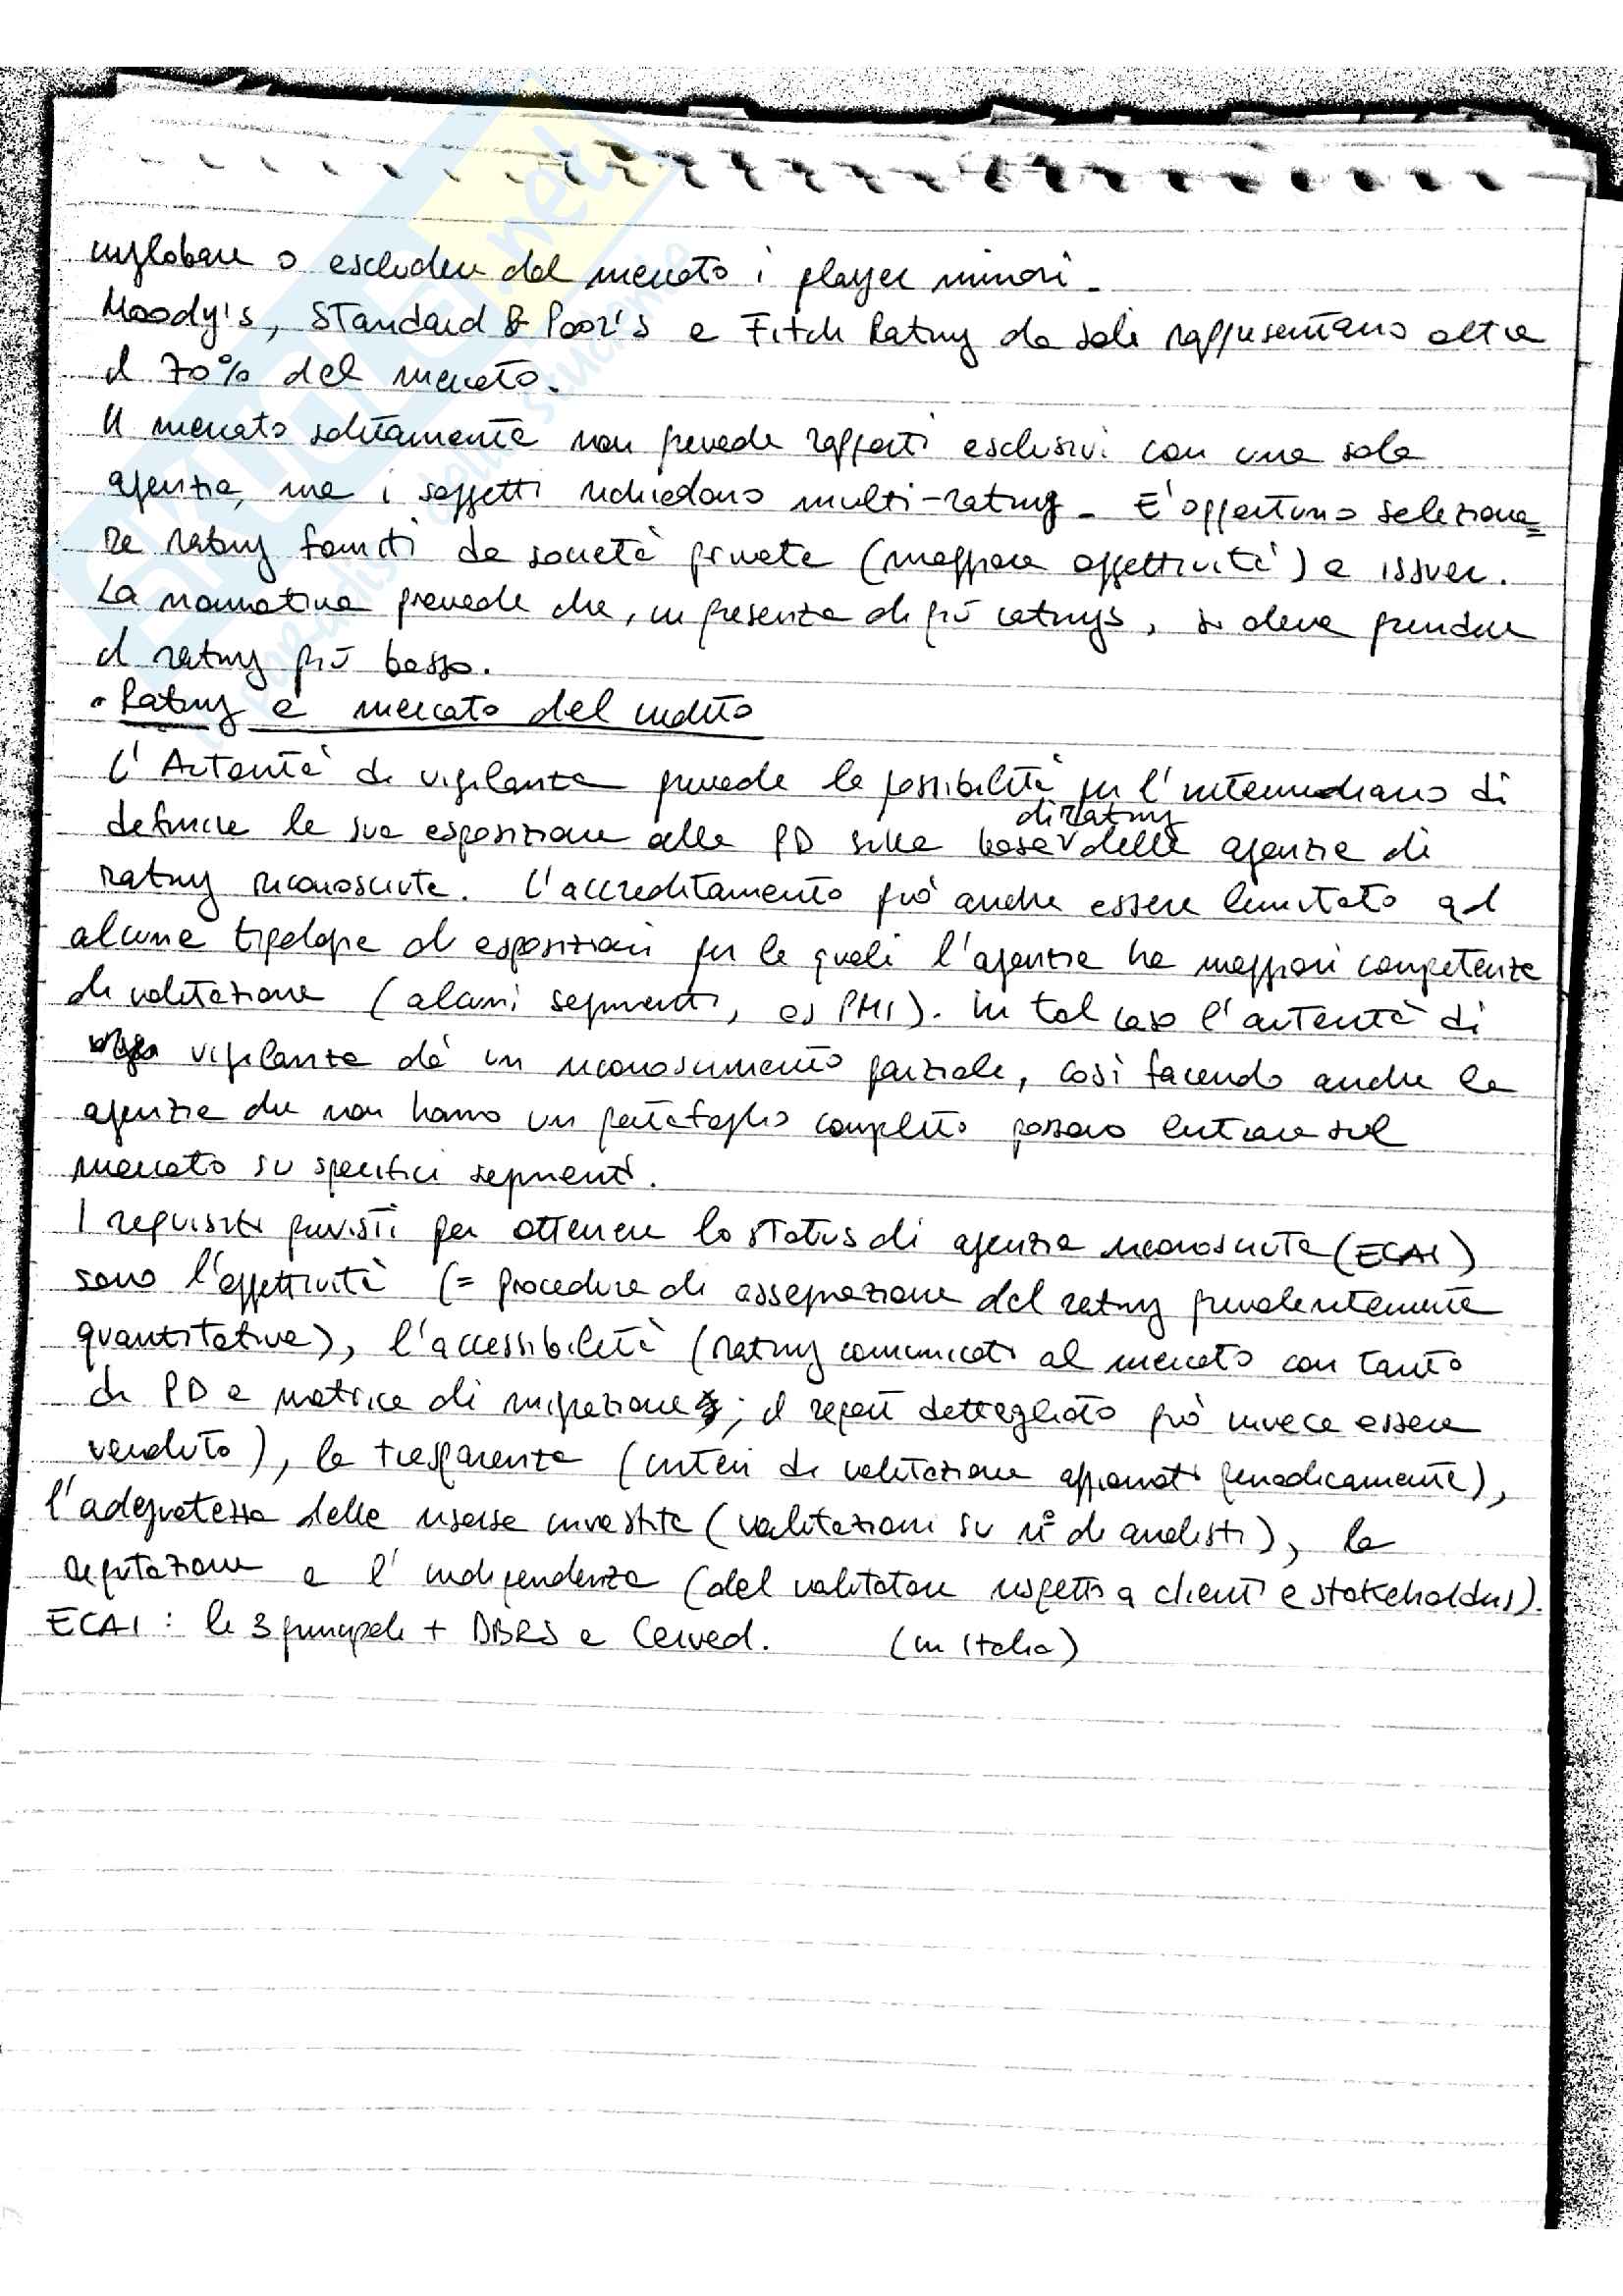 inglobare o escludere dal mercato i player minori.
Moody's, Standard & Poor's e Fitch Rating da sole rappresentano oltre
il 70% del mercato.
Il mercato solitamente non prevede rapporti esclusivi con una sola
agenzia, ma i soggetti richiedono multi-rating. E' opportuno seleziona=
re rating forniti da società private (maggiore oggettività) e issuer.
La normativa prevede che, in presenza di più ratings, si deve prendere
il rating più basso.
• Rating e mercato del credito
L'Autorità di vigilanza prevede la possibilità per l'intermediario di
di rating
definire la sua esposizione alla PD sulla base delle agenzie di
rating riconosciute. L'accreditamento può anche essere limitato ad
alcune tipologie di esposizioni per le quali l'agenzia ha maggiori competenze
di valutazione (alcuni segmenti, es PMI). In tal caso l'autorità di
vigilanza dà un riconoscimento parziale, così facendo anche le
agenzie che non hanno un portafoglio completo possono entrare sul
mercato su specifici segmenti.
I requisiti previsti per ottenere lo status di agenzia riconosciuta (ECAI)
sono l'oggettività (= procedure di assegnazione del rating prevalentemente
quantitative), l'accessibilità (rating comunicati al mercato con tanto
di PD e matrice di migrazione; il report dettagliato può invece essere
venduto), la trasparenza (criteri di valutazione aggiornati periodicamente),
l'adeguatezza delle risorse investite (valutazioni su n° di analisti), la
reputazione e l'indipendenza (del valutatore rispetto a clienti e stakeholders).
ECAI: le 3 principali + DBRS e Cerved. (in Italia)